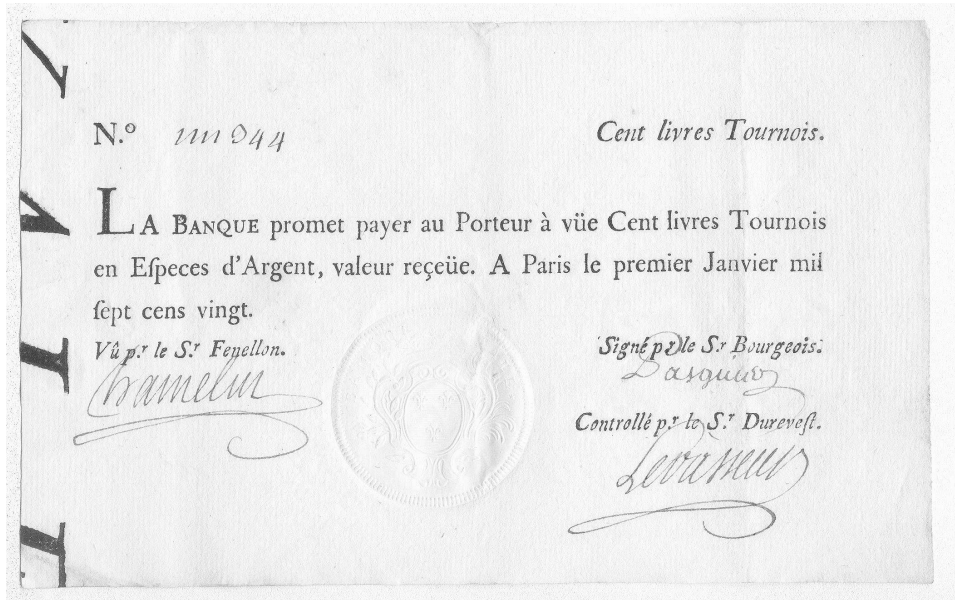 N.o 1111944 Cent livres Tournois.
LA BANQUE promet payer au Porteur à vüe Cent livres Tournois
en Eſpeces d'Argent, valeur reçeüe. A Paris le premier Janvier mil
ſept cens vingt.
Vû p.r le S.r Fenellon. Signé p.r le S.r Bourgeois.
Controllé p.r le S.r Dureveſt.
Levasseur